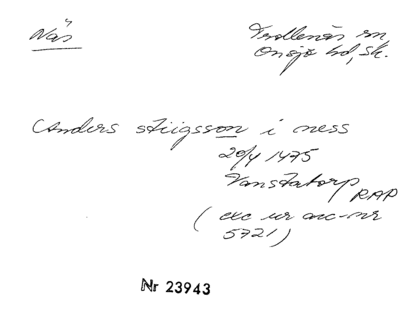 Näs
Trollenäs sn,
Onsjö hd, Sk.
Anders stiigsson i ness
20/4 1475
Vanstatorp
RAP
( exc ur acc-nr
5721 )
Nr 23943